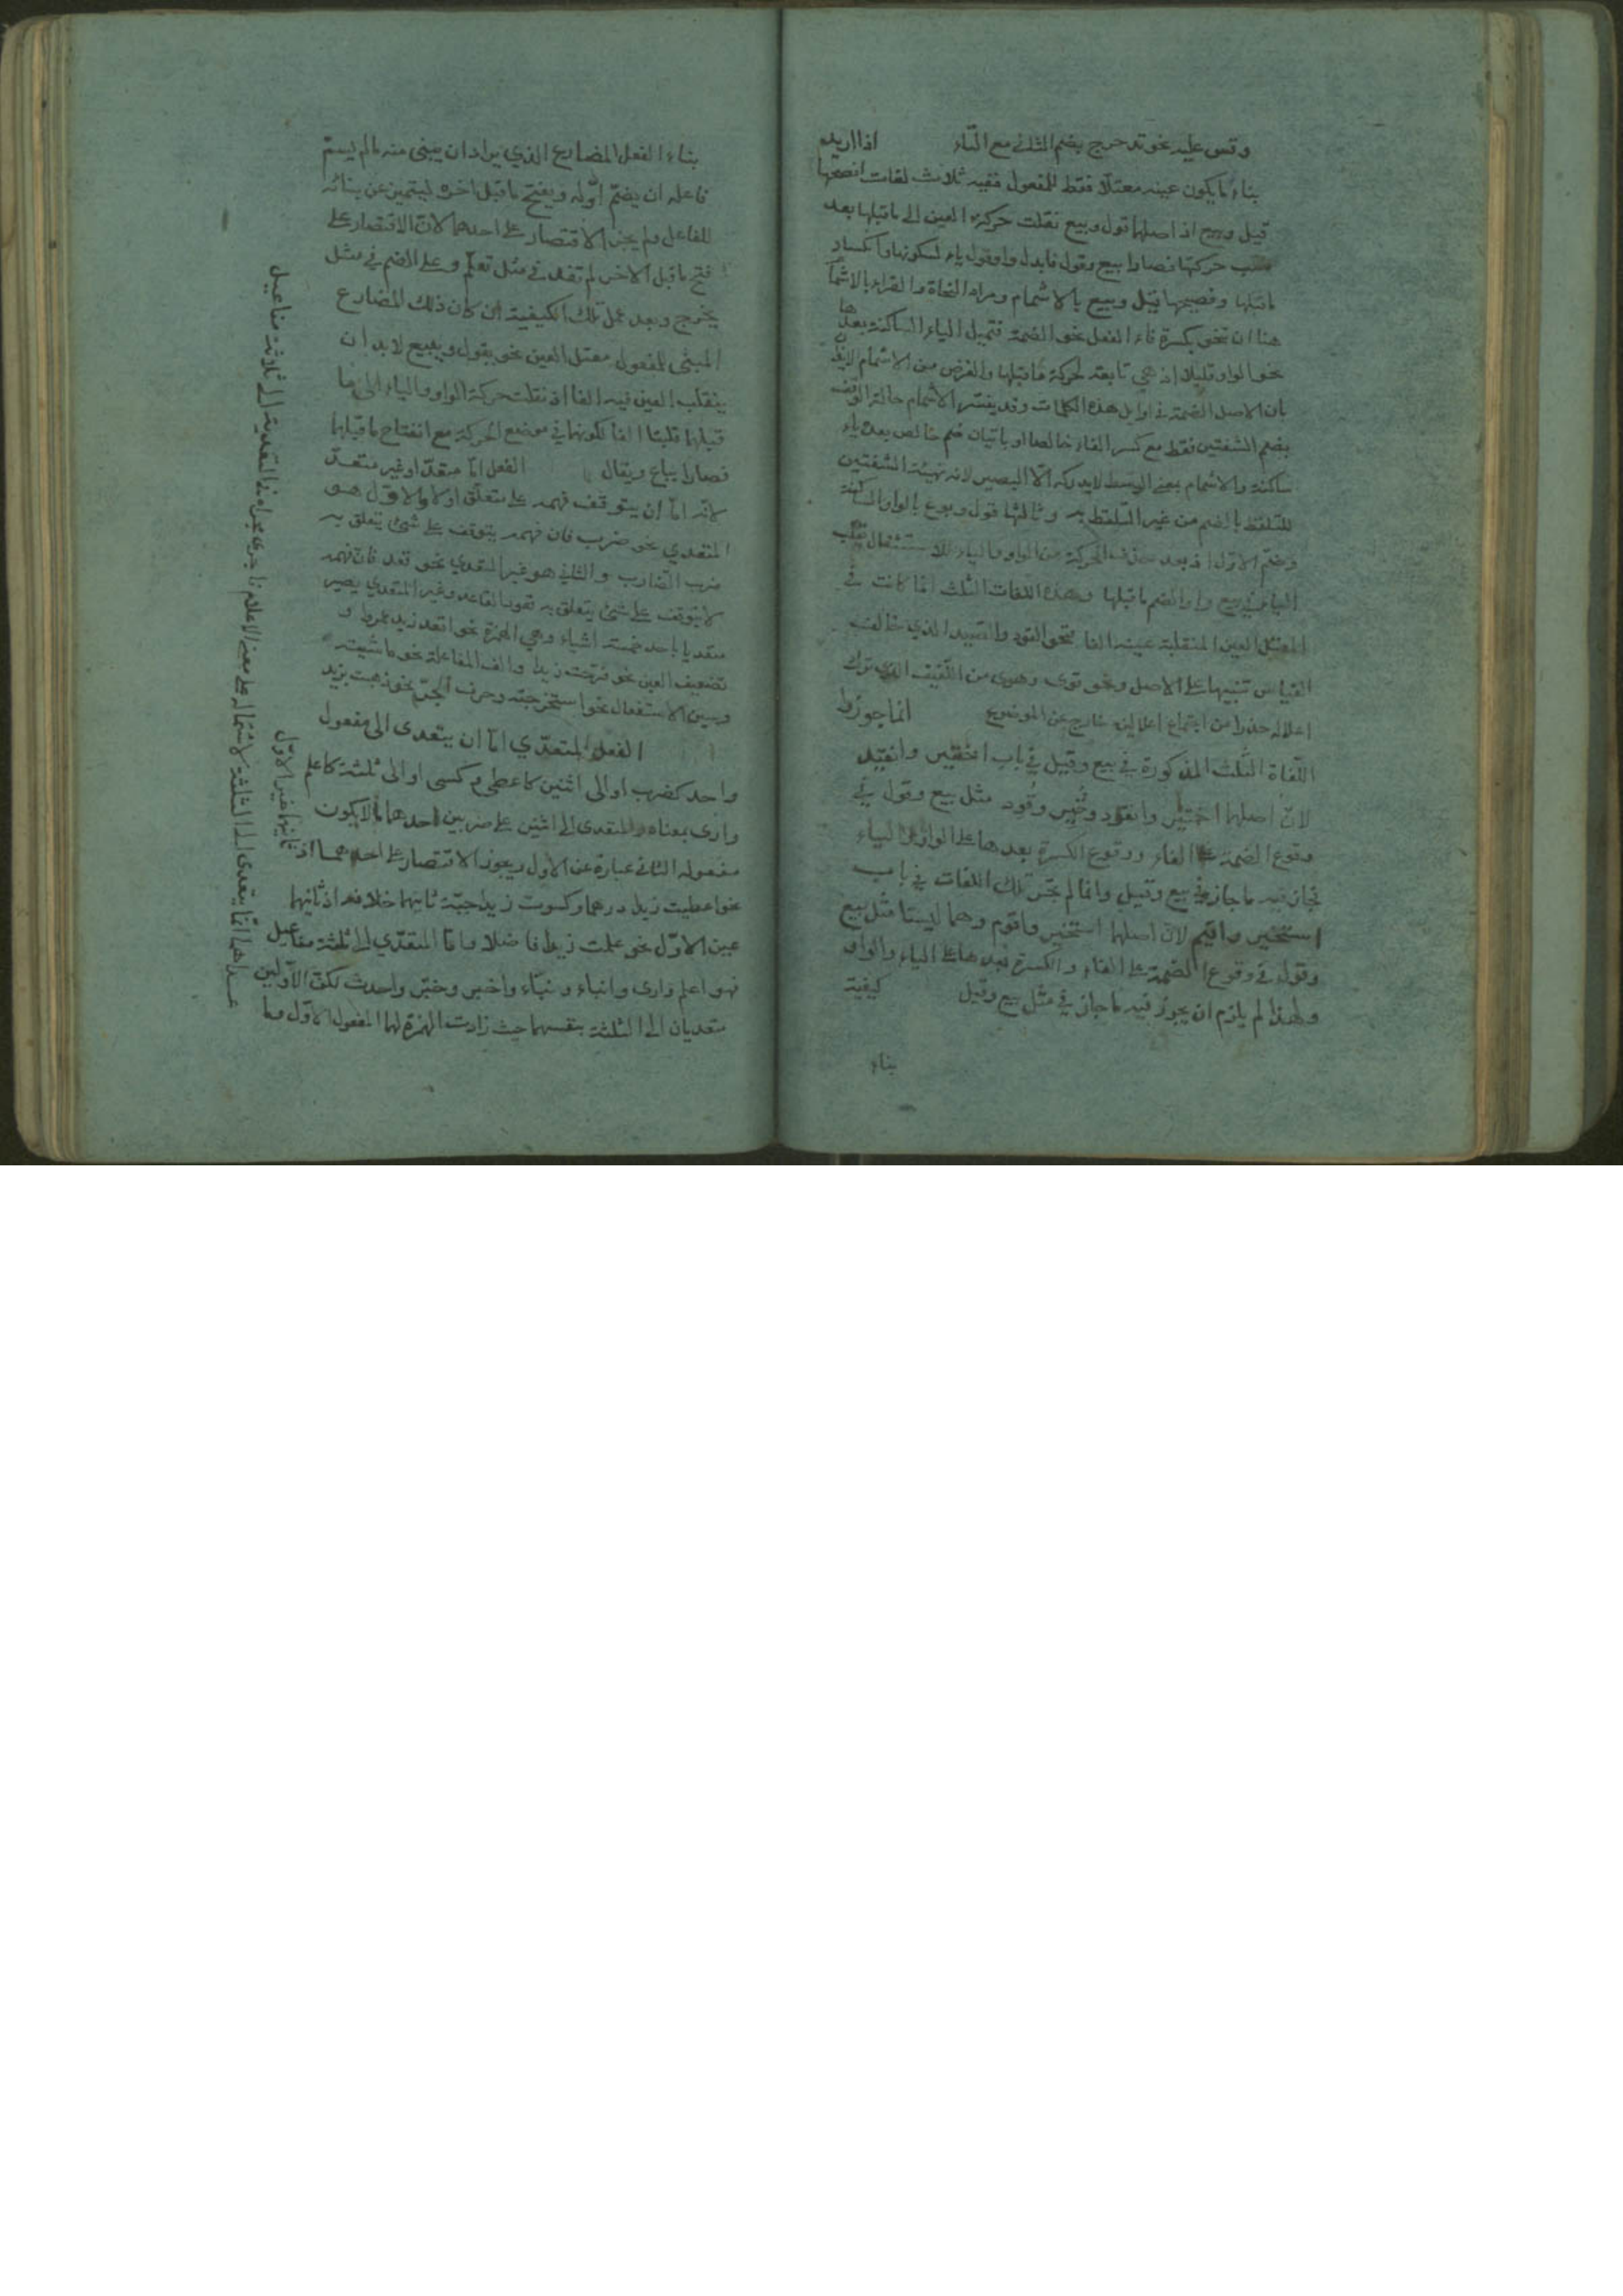 وقس عليه نحو تدحرج بضم الثاني مع التاء اذا اريد
بناء ما يكون عينه معتلا فقط للمفعول ففيه ثلاث لغات افصحها
قيل وبيع اذ اصلها قول وبيع نقلت حركة العين الى ما قبلها بعد
سلب حركتها فصارا بيع وقول فابدل واو قول ياء لسكونها وانكسار
ما قبلها وفصيحها قيل وبيع بالاشمام ومراد النحاة والقراء بالاشمام
هنا ان تنحو بكسرة فاء الفعل نحو الضمة فتميل الياء الساكنة بعدها
نحو الواو قليلا اذ هي تابعة لحركة ما قبلها والغرض من الاشمام
بان الاصل الضمة في اوايل هذه الكلمات وقد يفسر الاشمام حالة الوقف
بضم الشفتين فقط مع كسر الفاء خالصا او باتيان ضم خالص بعده ياء
ساكنة والاشمام بمعنى الوسط لا يدركه الا البصير لانه تهيئة الشفتين
للتلفظ بالضم من غير التلفظ به وثالثها قول وبوع بالواو الساكنة
وضم الاول اذ بعد حذف الحركة من الواو والياء للاستثقال تقلب
الياء في بيع واوا لضم ما قبلها وهذه اللغات الثلث انما كانت في
المعتل العين المنقلبة عينه الفا نحو القود والصيد الذي خالف
القياس تنبيها على الاصل ونحو قوى وهوى من اللفيف الذي ترك
اعلاله حذرا من اجتماع اعلالين خارج عن الموضوع انما جوزنا
اللغاة الثلث المذكورة في بيع وقيل في باب اختير وانقيد
لان اصلها اختير وانقود وتُيِر وقُوِد مثل بيع وقول في
وقوع الضمة على الفاء ووقوع الكسرة بعدها على الواو والياء
فجاز فيه ما جاز في بيع وقيل وانما لم يجز تلك اللغات في باب
استخير واقيم لان اصلها استخير واقوم وهما ليستا مثل بيع
وقول في وقوع الضمة على الفاء والكسرة بعدها على الياء والواو
ولهذا لم يلزم ان يجوز فيه ما جاز في مثل بيع وقيل كيفية
بناء
بناء الفعل المضارع الذي يراد ان يبنى منه ما لم يسم
فاعله ان يضم اوله ويفتح ما قبل اخره ليتميز عن بنائه
للفاعل ولم يجز الاقتصار على احدهما لان الاقتصار على
فتح ما قبل الاخر لم تفد في مثل تعلم وعلى الضم في مثل
يخرج وبعد عمل تلك الكيفية ان كان ذلك المضارع
المبني للمفعول معتل العين نحو يقول ويبيع لابد ان
ينقلب العين فيه الفا اذ نقلت حركة الواو والياء الى ما
قبلها قلبتا الفا لكونها في موضع الحركة مع انفتاح ما قبلها
فصارا يباع ويقال الفعل اما متعد او غير متعد
لانه اما ان يتوقف فهمه على متعلق او لا والاول هو
المتعدي نحو ضرب فان فهمه يتوقف على شئ يتعلق به
ضرب الضارب والثاني هو غير المتعدي نحو قعد فان فهمه
لا يتوقف على شئ يتعلق به قعود القاعد وغير المتعدي يصير
متعديا باحد خمسة اشياء وهي الهمزة نحو اقعد زيد عمرا و
تضعيف العين نحو فرحت زيدا والف المفاعلة نحو ماشيته
وسين الاستفعال نحو استخرجته وحرف الجر نحو ذهبت بزيد
الفعل المتعدي اما ان يتعدى الى مفعول
واحد كضرب او الى اثنين كاعطى وكسى او الى ثلثة كاعلم
وارى بمعناه والمتعدى الى اثنين على ضربين احدهما ما لا يكون
مفعوله الثاني عبارة عن الاول ويجوز الاقتصار على احدهما اذ
ثانيهما غير الاول
نحو اعطيت زيدا درهما وكسوت زيدا جبة ثانيهما خلافه اذ ثانيهما
عين الاول نحو علمت زيدا فاضلا واما المتعدي الى ثلثة مفاعيل
فهو اعلم وارى وانباء ونباء واخبر وخبر واحدث لكن الاولين
متعديان الى الثلثة بنفسهما حيث زادت الهمزة لهما المفعول الاول وما
عداهما انما يتعدى الى الثلثة لاشتماله على معنى الاعلام فاجرى مجراه في التعدية الى ثلاثة مفاعيل